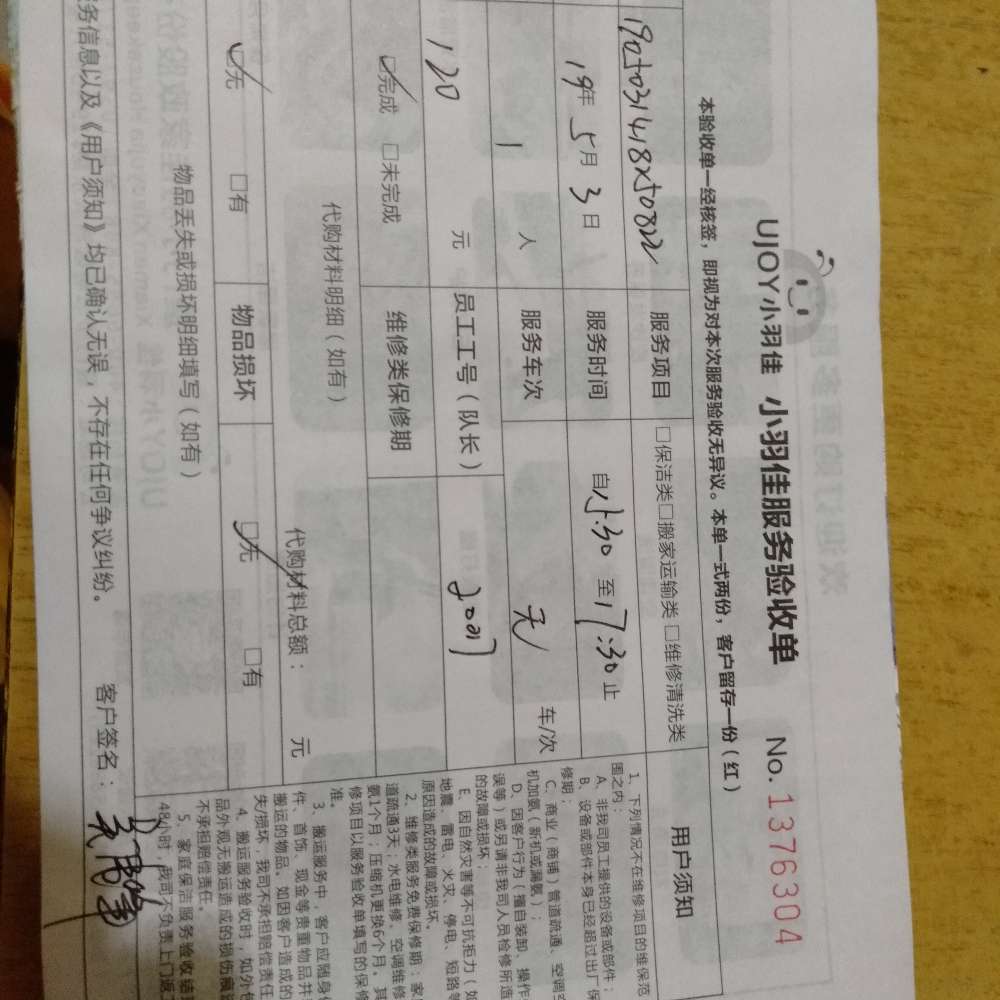 UJOY小羽佳 小羽佳服务验收单 No.1376304
本验收单一经核签，即视为对本次服务验收无异议。本单一式两份，客户留存一份（红）
服务项目 □保洁类□搬家运输类□维修清洗类
19年5月3日 服务时间 自 :30至17:30止
1人 服务车次 无 车/次
120元 员工工号（队长）
☑完成 □未完成 维修类保修期
代购材料明细（如有） 代购材料总额： 元
☑无 □有 物品损坏 ☑无 □有
物品丢失或损坏明细填写（如有）
务信息以及《用户须知》均已确认无误，不存在任何争议纠纷。 客户签名：
用户须知
1、下列情况不在维修项目的维保范
围之内：
A、非我司员工提供的设备或部件；
B、设备或部件本身已经超过出厂保
修期；
C、商业（商铺）管道疏通、空调空
机加氨（新机或漏氨）；
D、因客户行为（擅自装卸、操作
误等）或另请非我司人员检修所造
的故障或损坏；
E、因自然灾害等不可抗拒力（如
地震、雷电、火灾、停电、短路等
原因造成的故障或损坏。
2、维修类服务免费保修期：家
道疏通3天；水电维修、空调维修
氨1个月；压缩机更换6个月。其
修项目以服务验收单填写的保修
准。
3、搬运服务中，客户应随身
件、首饰、现金等贵重物品并
搬运的物品。如因客户造成的
失/损坏，我司不承担赔偿责任
4、搬运服务验收时，如外包
品外观无搬运造成的损伤痕迹
不承担赔偿责任。
5、家庭保洁服务验收结
48小时，我司不负责上门返